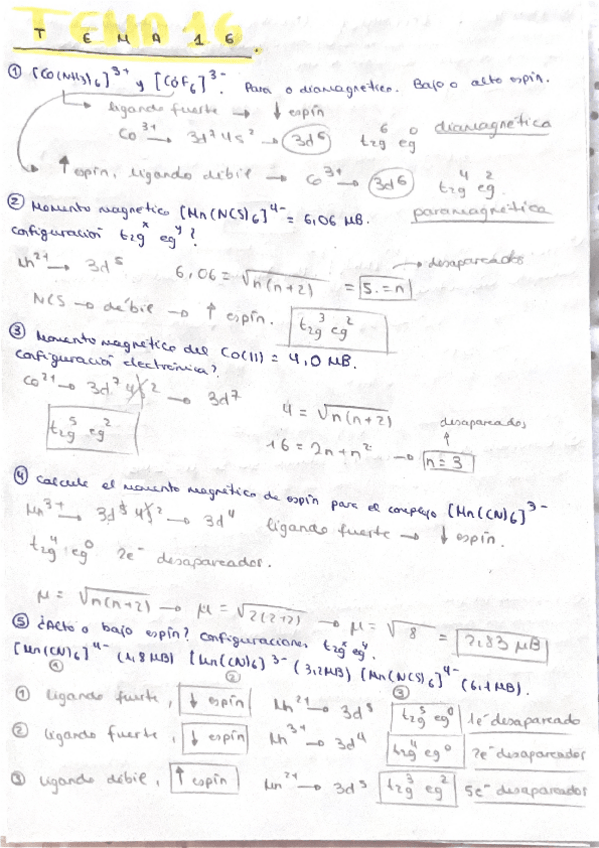 TEMA 16
T E M A 1 6 .
① [Co(NH3)6]3+ y [CoF6]3-. Para o diamagnético. Bajo o alto espín.
ligando fuerte → ↓ espín
Co3+ → 3d7 4s2 → 3d6 t2g6 eg0 diamagnética
↑ espín, ligando débil → Co3+ → 3d6 t2g4 eg2.
paramagnética
② Momento magnético [Mn(NCS)6]4- = 6,06 MB.
configuración t2gx egy?
Mn2+ → 3d5 6,06 = √n(n+2) = 5.=n → desapareados
NCS → débil → ↑ espín. t2g3 eg2
③ Momento magnético del Co(II) = 4,0 MB.
configuración electrónica?
Co2+ → 3d7 4s2 → 3d7
4 = √n(n+2) desapareados
t2g5 eg2 16 = 2n+n2 → n=3
④ Calcule el momento magnético de espín para el complejo [Mn(CN)6]3-
Mn3+ → 3d5 4s2 → 3d4 ligando fuerte → ↓ espín.
t2g4 eg0 2e- desapareados.
μ = √n(n+2) → μ = √2(2+2) → μ = √8 = 2,83 MB
⑤ ¿Alto o bajo espín? Configuraciones t2gx egy.
[Mn(CN)6]4- (1,8MB) [Mn(CN)6]3- (3,2MB) [Mn(NCS)6]4- (6,1MB).
① ② ③
① ligando fuerte, ↓ espín Mn2+ → 3d5 t2g5 eg0 1e- desapareado
② ligando fuerte, ↓ espín Mn3+ → 3d4 t2g4 eg0 2e- desapareados
③ ligando débil, ↑ espín Mn2+ → 3d5 t2g3 eg2 5e- desapareados